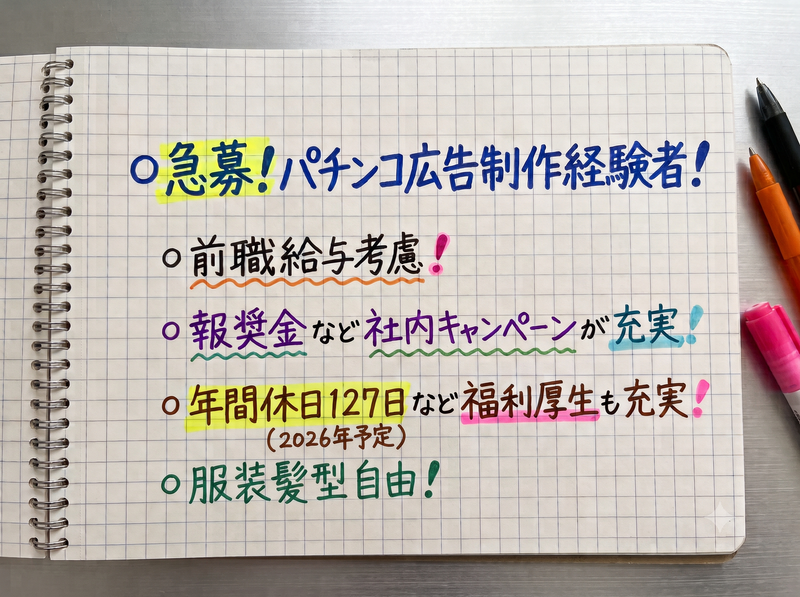 ○急募！パチンコ広告制作経験者！
○前職給与考慮！
○報奨金など社内キャンペーンが充実！
○年間休日127日など福利厚生も充実！
（2026年予定）
○服装髪型自由！